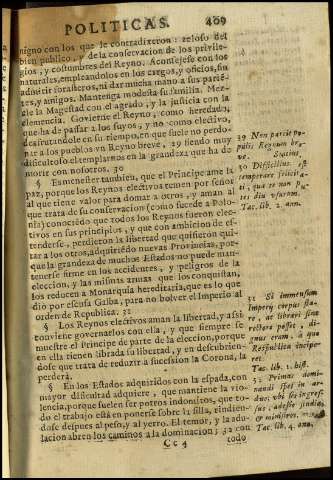 POLITICAS. 409
nigno con los que le contradixeron: zeloso del
bien publico, y de la conservacion de los privile-
gios, y costumbres del Reyno. Aconsejese con los
naturales, empleandolos en los cargos, y oficios, sin
admitir forasteros, ni dar mucha mano a sus parien-
tes, y amigos. Mantenga modesta su familia. Mez-
cle la Magestad con el agrado, y la justicia con la
clemencia. Govierne el Reyno, como heredado,
que ha de passar a los suyos, y no como electivo,
desfrutandole en su tiempo, en que suele no perdo-
nar a los pueblos vn Reyno breve, 29 siendo muy
dificultoso el templarnos en la grandeza que ha de
morir con nosotros. 30
§ Es menester tambien, que el Principe ame la
paz, porque los Reynos electivos temen por señor
al que tiene valor para domar a otros, y aman al
que trata de su conservacion (como sucede a Polo-
nia) conocido que todos los Reynos fueron elec-
tivos en sus principios, y que con ambicion de es-
tenderse, perdieron la libertad que quisieron qui-
tar a los otros, adquiriendo nuevas Provincias, por-
que la grandeza de muchos Estados no puede man-
tenerse firme en los accidentes, y peligros de la
eleccion, y las mismas armas que los conquistan,
los reducen a Monarquia hereditaria, que es lo que
dio por escusa Galba, para no bolver el Imperio al
orden de Republica. 31
§ Los Reynos electivos aman la libertad, y assi
conviene governarlos con ella, y que siempre se
muestre el Principe de parte de la eleccion, porque
en ella tienen librada su libertad, y en descubrien-
dose que trata de reducir a succession la Corona, la
perderá.
§ En los Estados adquiridos con la espada, con
mayor dificultad adquiere, que mantiene la vio-
lencia, porque suelen ser potros indomitos, que to-
do el trabajo està en ponerse sobre la silla, rindien-
dose despues al peso, y al yerro. El temor, y la adu-
lacion abren los caminos a la dominacion; 32 con
Cc 4 todo
29 Non parcit po-
pulis Regnum bre-
ve. Statius
30 Difficilius est
temperare felicita-
ti, qua te non pu-
tes diu vsurum.
Tac. lib. 2. ann.
31 Si immensum
Imperij corpus sta-
re, ac librari sine
rectore posset, dig-
nus eram, à quo
Respublica incipe-
ret.
Tac. lib. 1. hist.
32 Primas domi-
nandi spes in ar-
duo: vbi sis ingres-
sus, adesse studia,
& ministros.
Tac. lib. 4. ann.